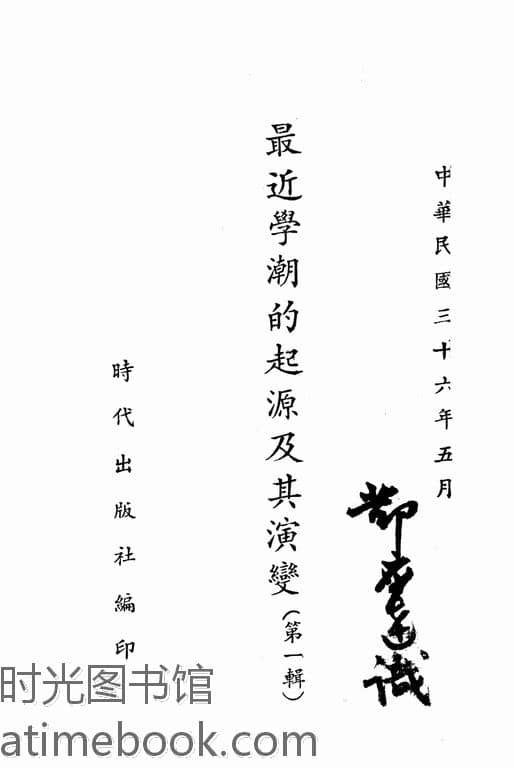 中華民國三十六年五月
最近學潮的起源及其演變（第一輯）
時代出版社編印
时光图书馆
atimebook.com